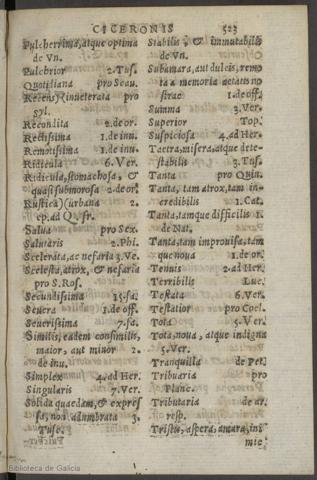 CICERONIS 523
Pulcherrima, atque optima
de Vn.
Pulchrior 2. Tus.
Quotidiana pro Scau.
Recens)(inueterata pro
syl.
Recondita 2. de or.
Rectissima 1. de inu.
Remotissima 1. de inu.
Ridicula 6. Ver.
Ridicula, stomachosa, &
quasi submorosa 2. de or.
Rustica)(urbana 2.
ep. ad Q. fr.
Salua pro Sex.
Salutaris 2. Phi.
Scelerata, ac nefaria 3. Ve.
Scelesta, atrox, & nefaria
pro S. Ros.
Secundissima 15. fa.
Seuera 1. de off.
Seuerissima 7. fa.
Similis, eadem consimilis,
maior, aut minor 2.
de inu.
Simplex 4. ad Her.
Singularis 7. Ver.
Solida quaedam, & expres
sa, non adumbrata 3.
Tusc.
Stabilis, & immutabilis
de Vn.
Subamara, aut dulcis, remo
ta a memoria aetatis no
strae 1. de off.
Summa 3. Ver.
Superior Top.
Suspiciosa 4. ad Her.
Taetra, misera, atque dete-
stabilis 3. Tus.
Tanta pro Quin.
Tanta, tam atrox, tam in-
credibilis 1. Cat.
Tanta, tamque difficilis 1.
de Nat.
Tanta, tam improuisa, tam
que noua 1. de or.
Tenuis 2. ad Her.
Terribilis Luc.
Testata 6. Ver.
Testatior pro Coel.
Tota 5. Ver.
Tota, noua, atque indigna
5. Ver.
Tranquilla de Pet.
Tribuaria pro
Planc.
Tributaria de ar.
resp.
Tristis, aspera, amara, ini
mie
Biblioteca de Galicia